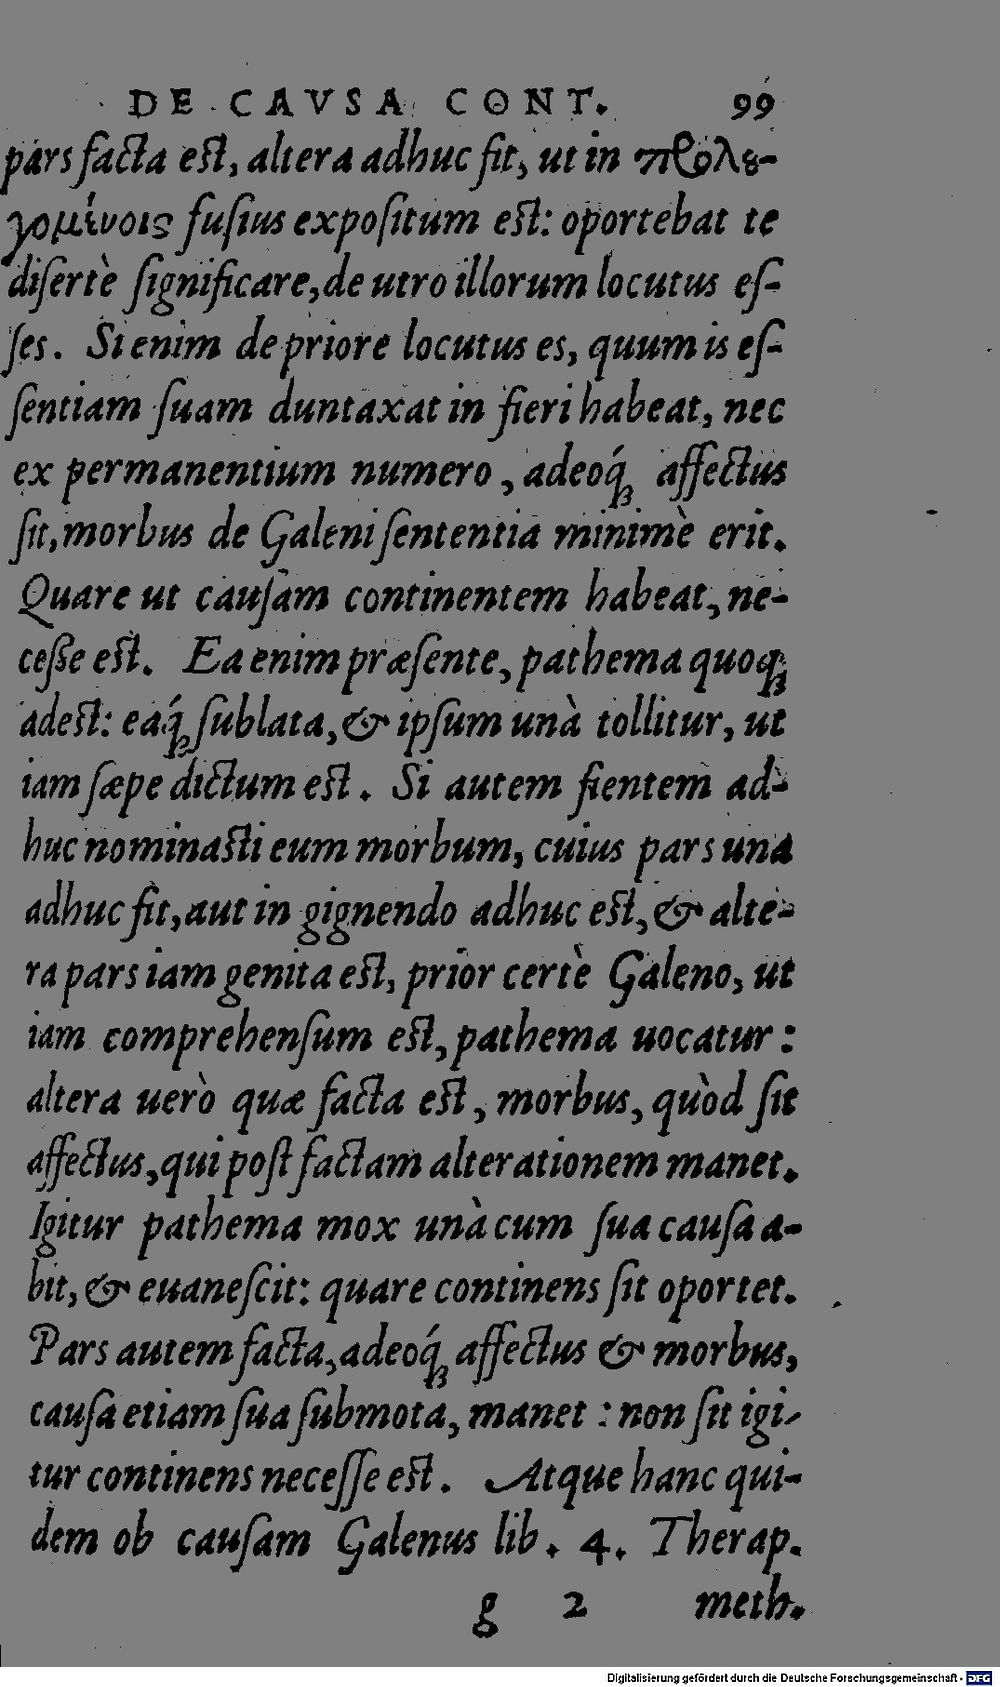 DE CAVSA CONT. 99
pars facta est, altera adhuc fit, ut in προλε-
γομένοις fusius expositum est: oportebat te
disertè significare, de utro illorum locutus es-
ses. Si enim de priore locutus es, quum is es-
sentiam suam duntaxat in fieri habeat, nec
ex permanentium numero, adeoq́ꝫ affectus
sit, morbus de Galeni sententia minimè erit.
Quare ut causam continentem habeat, ne-
cesse est. Ea enim præsente, pathema quoqꝫ
adest: eaq́ꝫ sublata, & ipsum unà tollitur, ut
iam sæpe dictum est. Si autem fientem ad-
huc nominasti eum morbum, cuius pars una
adhuc fit, aut in gignendo adhuc est, & alte-
ra pars iam genita est, prior certè Galeno, ut
iam comprehensum est, pathema uocatur:
altera uerò quæ facta est, morbus, quòd sit
affectus, qui post factam alterationem manet.
Igitur pathema mox unà cum sua causa a-
bit, & euanescit: quare continens sit oportet.
Pars autem facta, adeoq́ꝫ affectus & morbus,
causa etiam sua submota, manet: non sit igi-
tur continens necesse est. Atque hanc qui-
dem ob causam Galenus lib. 4. Therap.
g 2 meth.
Digitalisierung gefördert durch die Deutsche Forschungsgemeinschaft - DFG